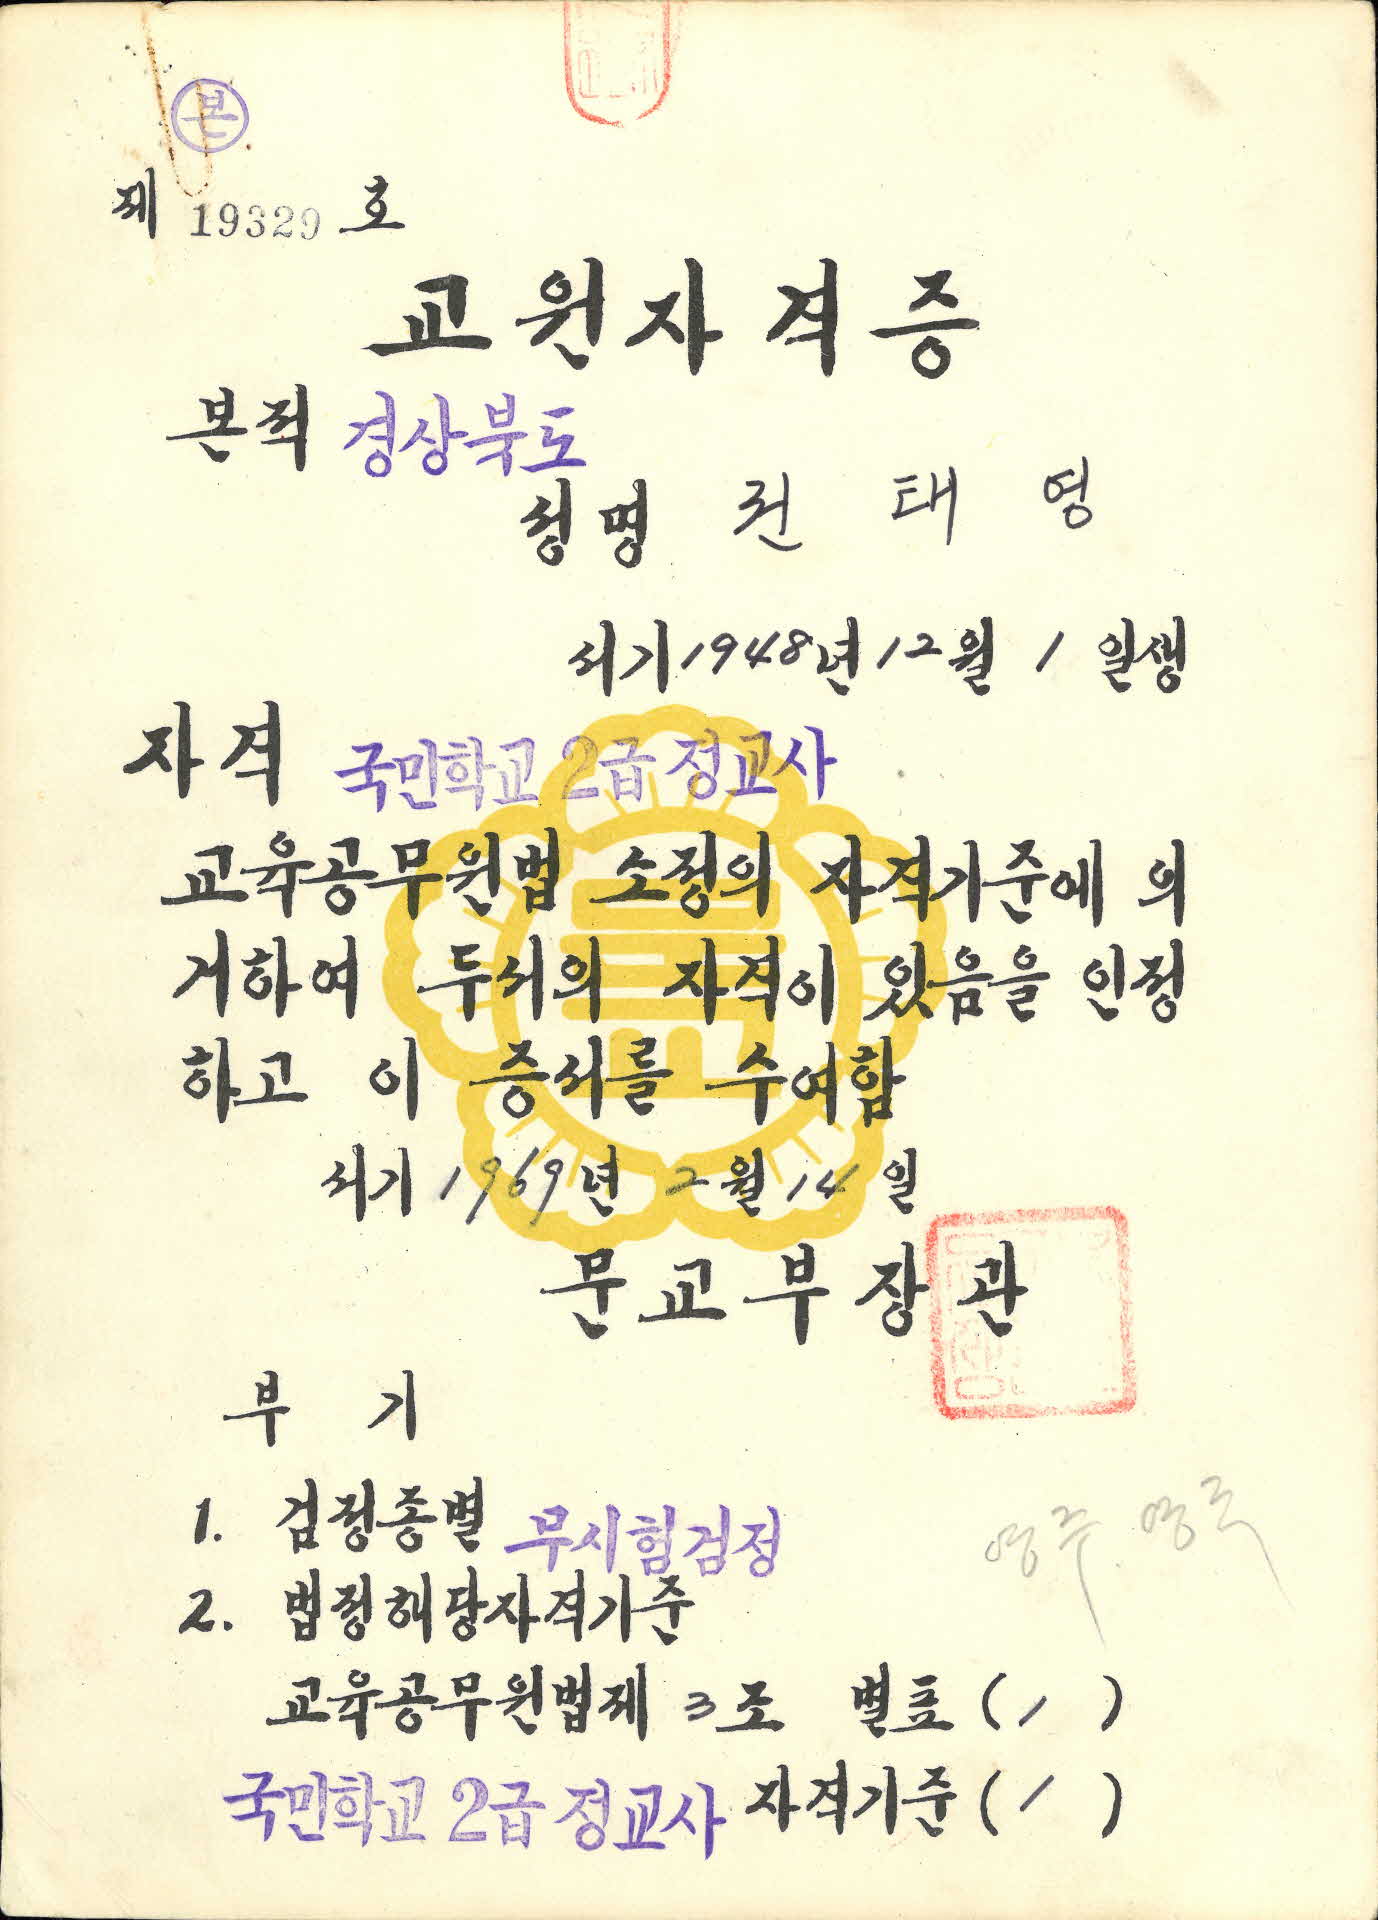 본
제 19329 호
교원자격증
본적 경상북도
성명 권 태 영
서기 1948년 12월 1 일생
자격 국민학교 2급 정교사
교육공무원법 소정의 자격기준에 의
거하여 두서의 자격이 있음을 인정
하고 이 증서를 수여함
서기 1969년 2월 14일
문교부장관
부 기
1. 검정종별 무시험검정
2. 법정해당자격기준
교육공무원법제 3조 별표 (1)
국민학교 2급 정교사 자격기준 (1)